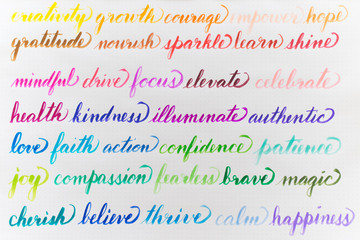 creativity growth courage empower hope
gratitude nourish sparkle learn shine
mindful drive focus elevate celebrate
health kindness illuminate authentic
love faith action confidence patience
joy compassion fearless brave magic
cherish believe thrive calm happiness